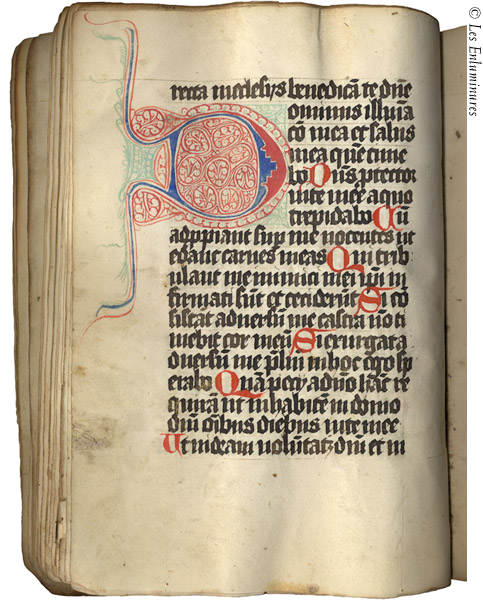 recta in ecclesijs benedicā te dn̄e
Dominus illuīa
cō mea et salus
mea quē time
bo Dn̄s ꝓtector
uite mee a quo
trepidabo Cū
appropiant suꝑ me nocentes ut
edant carnes meas Qui trib
ulant me inimici mei
firmati sūt et ceciderūt Si cō
sistāt aduersū me castra nō ti
mebit cor meū Si exurgat a
duersū me p̄liū in hoc ego sp
erabo Unā pecij a dn̄o hāc re
quirā ut inhabitē in domo
dn̄i oībus diebus uite mee
Ut uideam uolūtatē dn̄i et ui
© Les Enluminures